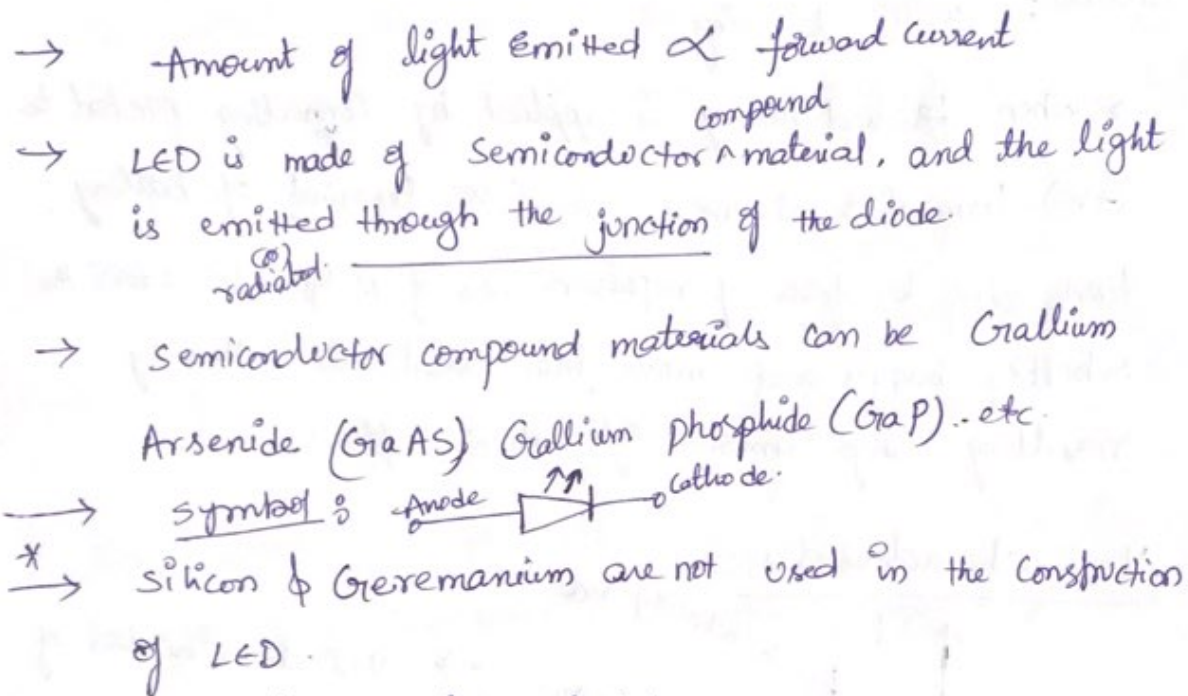 → Amount of light emitted ∝ forward current
compound
→ LED is made of semiconductor ^ material, and the light
is emitted through the junction of the diode.
(or) radiated.
→ semiconductor compound materials can be Gallium
Arsenide (GaAS) Gallium phosphide (GaP)..etc.
→ symbol : Anode Cathode.
* → silicon & Geremanium are not used in the construction
of LED.